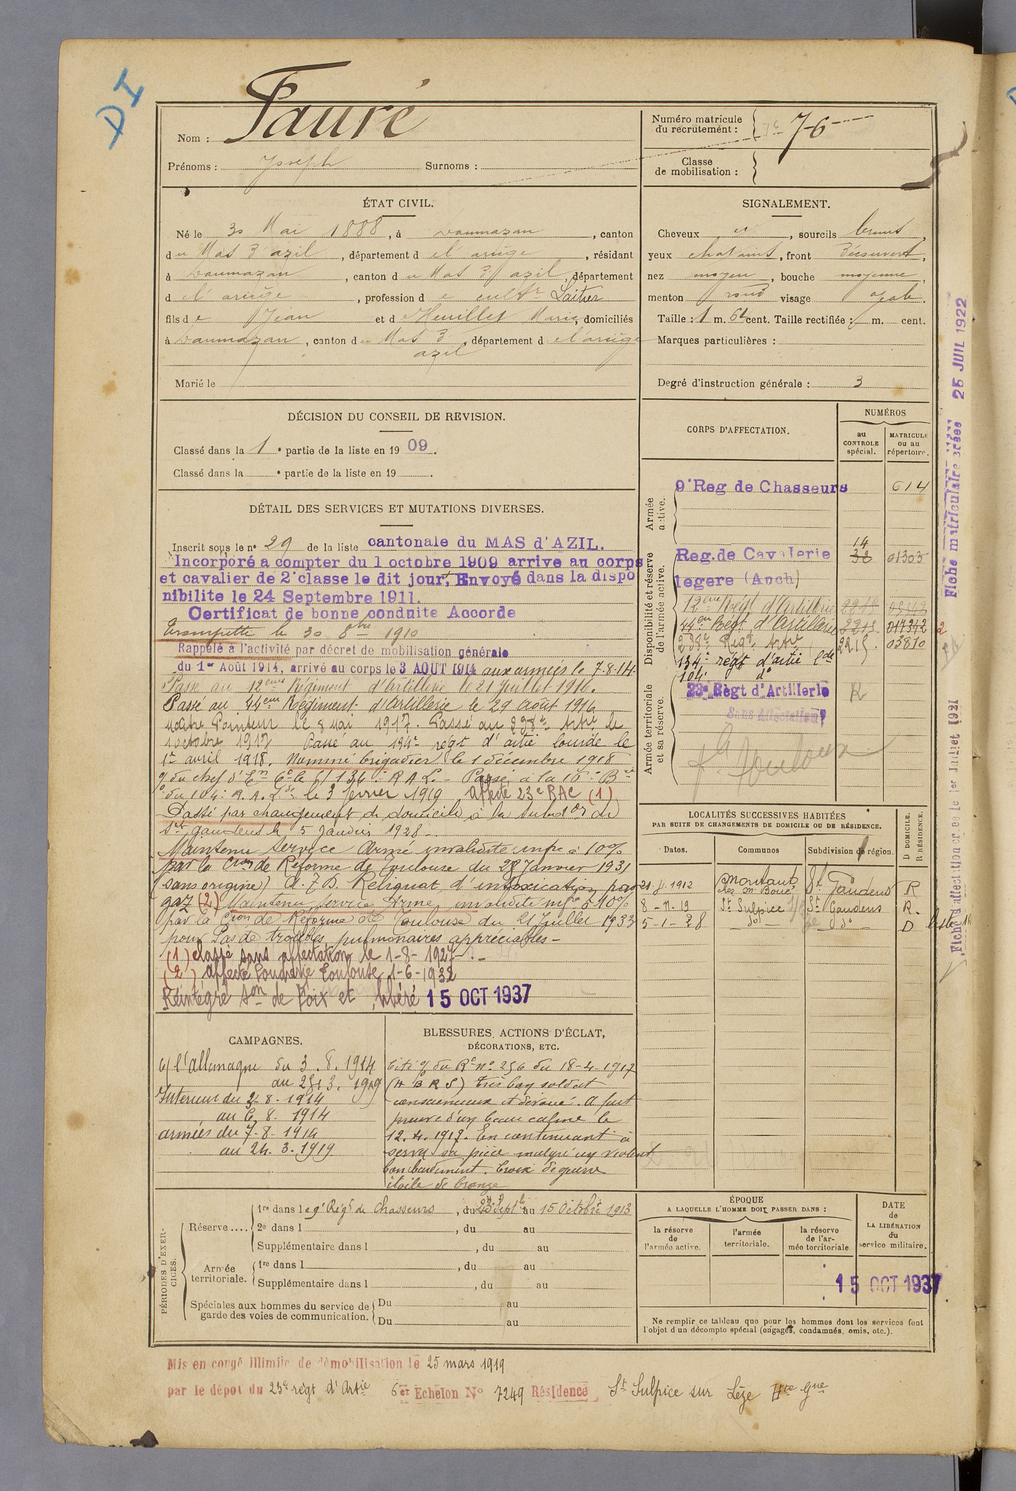 DI
Nom : Fauré
Prénoms : Joseph Surnoms :
Numéro matricule du recrutement : 76
Classe de mobilisation :
ÉTAT CIVIL.
Né le 30 Mai 1888, à Daumazan, canton
du Mas d'azil, département de l'ariège, résidant
à Daumazan, canton du Mas d'azil, département
de l'ariège, profession de cultr Laitier
fils de Jean et de Heuillet Marie, domiciliés
à Daumazan, canton du Mas d'azil, département de l'ariège
Marié le
SIGNALEMENT.
Cheveux et, sourcils bruns,
yeux chatains, front découvert,
nez moyen, bouche moyenne
menton rond visage ovale.
Taille : 1 m. 64 cent. Taille rectifiée : m. cent.
Marques particulières :
Degré d'instruction générale : 3
DÉCISION DU CONSEIL DE REVISION.
Classé dans la 1e partie de la liste en 1909.
Classé dans la e partie de la liste en 19 .
CORPS D'AFFECTATION.
NUMÉROS
au CONTROLE spécial.
MATRICULE ou au répertoire.
Armée active.
9e Reg de Chasseurs 614
Disponibilité et réserve de l'armée active.
Reg. de Cavalerie 14 38 01303
légere (Auch)
12eme Régt d'Artillerie
44eme Régt d'Artillerie
134e régt d'artie Lde
104e do
Armée territoriale et sa réserve.
23e Régt d'Artillerie R
Sans Affectation
DÉTAIL DES SERVICES ET MUTATIONS DIVERSES.
Inscrit sous le no 29 de la liste cantonale du MAS d'AZIL.
Incorporé a compter du 1 octobre 1909 arrive au corps
et cavalier de 2e classe le dit jour. Envoyé dans la dispo
nibilite le 24 Septembre 1911.
Certificat de bonne conduite Accorde
Trompette le 30 8bre 1910
Rappelé à l'activité par décret de mobilisation générale
du 1er Août 1914, arrivé au corps le 3 AOUT 1914 aux armées le 7-8-14
Passé au 12eme Régiment d'Artillerie le 21 Juillet 1916.
Passé au 44eme Régiment d'Artillerie le 29 août 1916
maître Pointeur le 8 mai 1917. Passé au
1 octobre 1917 Passé au 134e régt d'artie lourde le
1er avril 1918. Nommé brigadier le 1 décembre 1918
134e R A L. Passé à la 10e Bie
du 104e R.A.L. le 3 février 1919 affecté 23e RAC (1)
Passé par changement de domicile à la subdon de
St gaudens le 5 Janvier 1928.
Maintenu Service Armé invalidité infre à 10%
par la Con de Réforme de Toulouse du 28 Janvier 1931
(sans origine) d. 7 B. Reliquat d'intoxication par
gaz (2) Maintenu service Armé invalidité infre à 10%
par la Cion de Réforme de Toulouse du 21 Juillet 1933
pour Pas de troubles pulmonaires appréciables -
(1) classé sans affectation le 1-8-1927
(2) affecté Poudrerie Toulouse 1-6-1932
Réintégré Son de Foix et libéré 15 OCT 1937
LOCALITÉS SUCCESSIVES HABITÉES
PAR SUITE DE CHANGEMENTS DE DOMICILE OU DE RÉSIDENCE.
Dates. Communes Subdivision de région. D DOMICILE. R RÉSIDENCE.
21-8-1912 Montaut St Gaudens R
8-11-19 St Sulpice St Gaudens R.
5-1-28 do do D
CAMPAGNES.
c/ l'allemagne du 3.8.1914
au 25.3.1919
Intérieur du 3.8.1914
au 6.8.1914
armées du 7.8.1914
au 24.3.1919
BLESSURES, ACTIONS D'ÉCLAT, DÉCORATIONS, ETC.
Cité O/ du Rt no 256 du 18-4-1917
Très bon soldat
consciencieux et dévoué. A fait
preuve d'un beau calme le
12.4.1917. En continuant à
servir sa pièce malgré un violent
bombardement. Croix de guerre
étoile de bronze
PÉRIODES D'EXERCICES.
Réserve
1re dans le 9e Régt de Chasseurs, du 23 Septe au 15 Octobre 1913
2e dans l , du au
Supplémentaire dans l , du au
Armée territoriale.
1re dans l , du au
Supplémentaire dans l , du au
Spéciales aux hommes du service de garde des voies de communication.
Du au
Du au
ÉPOQUE
A LAQUELLE L'HOMME DOIT PASSER DANS :
la réserve de l'armée active.
l'armée territoriale.
la réserve de l'armée territoriale
DATE de LA LIBÉRATION du service militaire.
15 OCT 1937
Ne remplir ce tableau que pour les hommes dont les services font
l'objet d'un décompte spécial (engagés, condamnés, omis, etc.).
Mis en congé illimité de démobilisation le 25 mars 1919
par le dépot du 23e régt d'Artie 6er Echelon No 7249 Résidence St Sulpice sur Lèze Hte Gne
Fiche matriculaire créée 25 JUIL 1922
Fiche d'affectation créée le 1er Juillet 1921